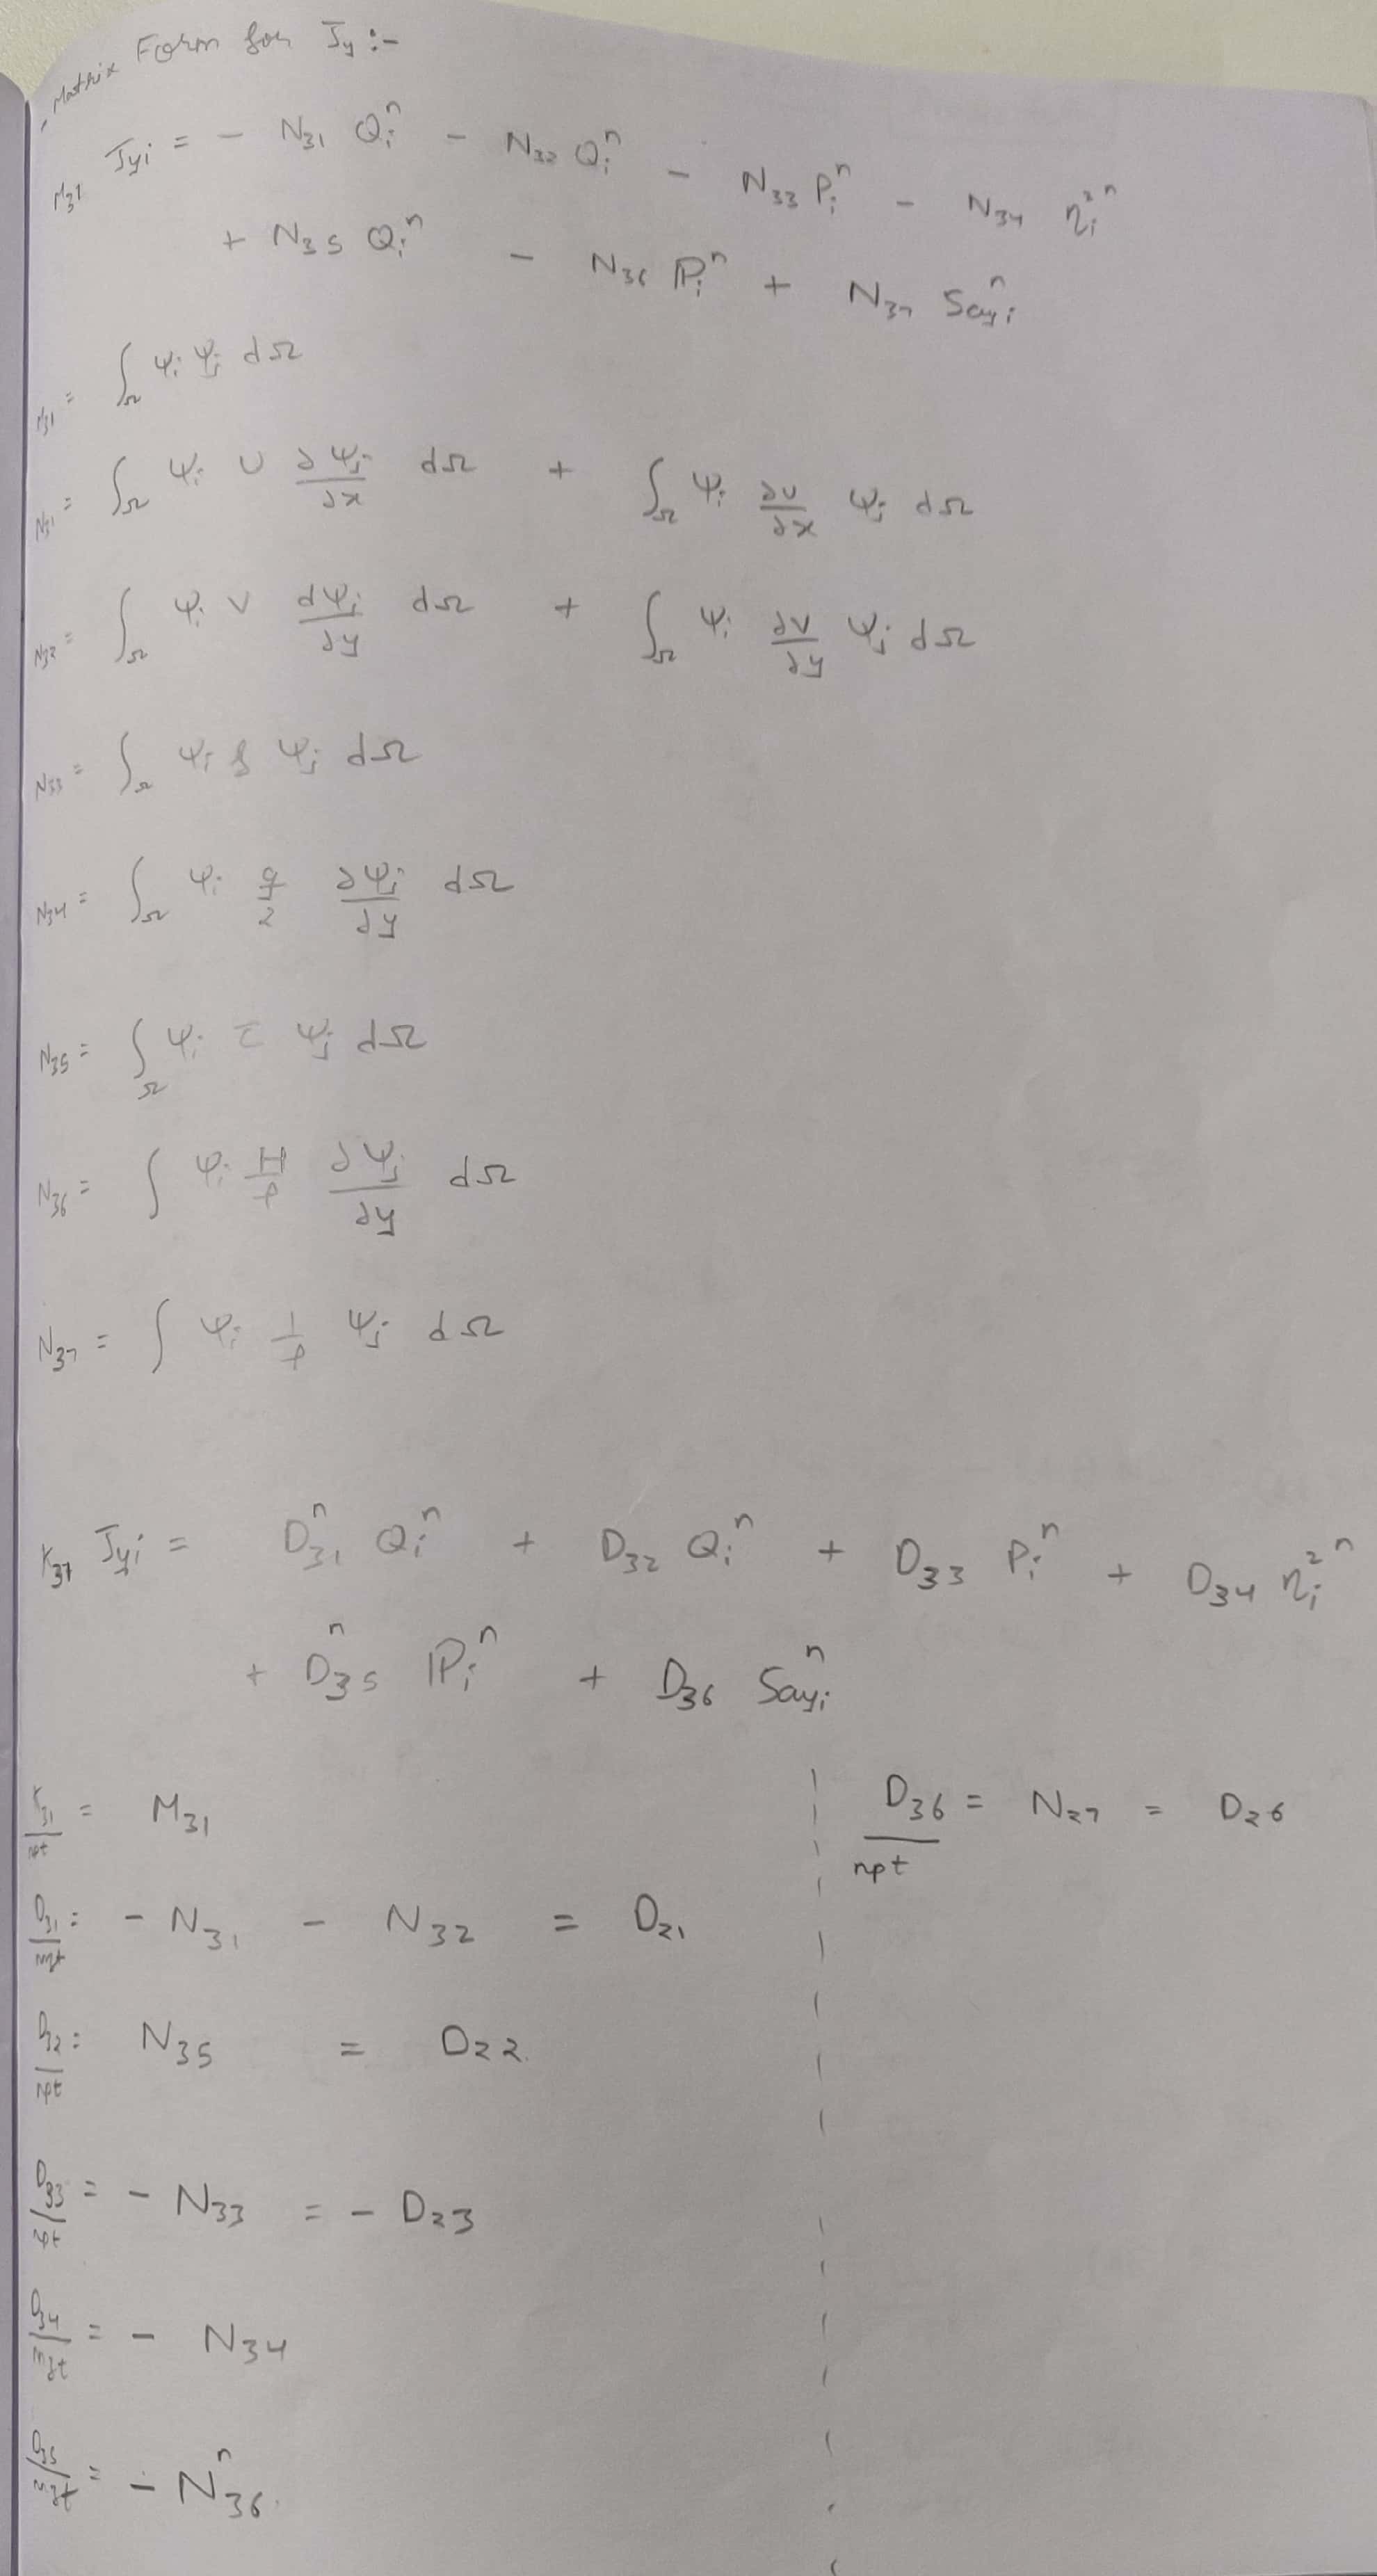 Matrix Form for Jy :-
M31 Jyi = - N31 Qi^n - N32 Qi^n - N33 Pi^n - N34 ηi^2^n
+ N35 Qi^n - N36 ℙi^n + N37 Sayi^n
M31 = ∫Ω Ψi Ψj dΩ
N31 = ∫Ω Ψi U ∂Ψj/∂x dΩ + ∫Ω Ψi ∂U/∂x Ψj dΩ
N32 = ∫Ω Ψi V ∂Ψj/∂y dΩ + ∫Ω Ψi ∂V/∂y Ψj dΩ
N33 = ∫Ω Ψi f Ψj dΩ
N34 = ∫Ω Ψi g/2 ∂Ψj/∂y dΩ
N35 = ∫Ω Ψi τ Ψj dΩ
N36 = ∫ Ψi H/ρ ∂Ψj/∂y dΩ
N37 = ∫ Ψi 1/ρ Ψj dΩ
K31 Jyi = D31^n Qi^n + D32 Qi^n + D33 Pi^n + D34 ηi^2^n
+ D35^n ℙi^n + D36 Sayi^n
K31 = M31
D36 = N27 = D26
npt
D31 = - N31 - N32 = D21
D32 = N35 = D22
npt
D33 = - N33 = - D23
D34 = - N34
D35 = - N36^n